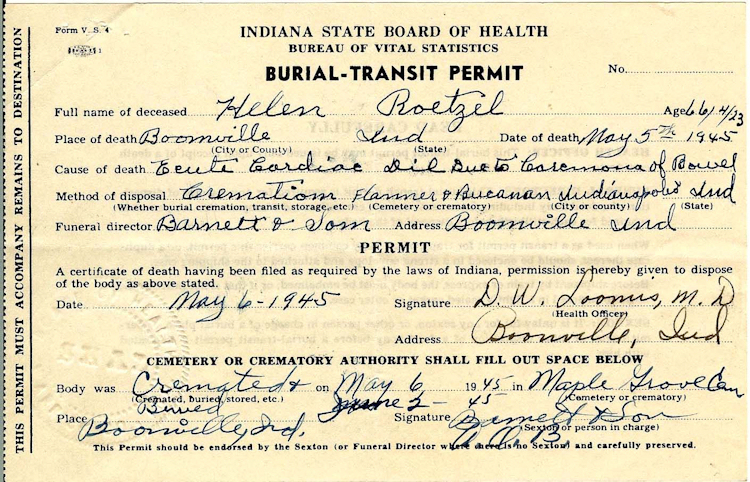 Form V. S. 4
INDIANA STATE BOARD OF HEALTH
BUREAU OF VITAL STATISTICS
BURIAL-TRANSIT PERMIT
No.
Full name of deceased Helen Roetzel Age 66/4/23
Place of death Boonville Ind Date of death May 5th 1945
(City or County) (State)
Cause of death Ecute Cardiac Dil Due to Caremona of Bowel
Method of disposal Cremation Flanner & Bucanan Indianapolis Ind
(Whether burial cremation, transit, storage, etc.) (Cemetery or crematory) (City or county) (State)
Funeral director Barnett & Son Address Boonville Ind
PERMIT
A certificate of death having been filed as required by the laws of Indiana, permission is hereby given to dispose
of the body as above stated.
Date May 6-1945 Signature D. W. Loomis, M. D
(Health Officer)
Address Boonville, Ind
CEMETERY OR CREMATORY AUTHORITY SHALL FILL OUT SPACE BELOW
Body was Cremated & on May 6 1945 in Maple Grove Cem
(Cremated, buried, stored, etc.) (Cemetery or crematory)
Buried June 2- 45 Signature Barnett & Son
Place Boonville, Ind. (Sexton or person in charge)
This Permit should be endorsed by the Sexton (or Funeral Director where there is no Sexton) and carefully preserved.
THIS PERMIT MUST ACCOMPANY REMAINS TO DESTINATION